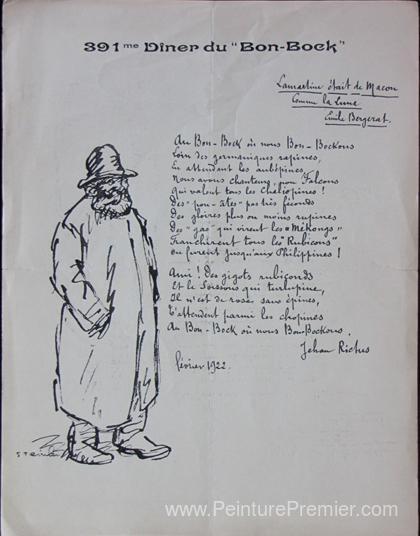 391me Dîner du "Bon-Bock"
Lamartine était de Macon
Comme la Lune
Emile Bergerat.
Au Bon-Bock où nous Bon-Bockons
Loin des germaniques rapines,
En attendant les aubépines,
Nous avons chanteurs pour Falcons
Qui valent tous les Chaliapines !
Des "pou-ètes" pas très féconds
Des gloires plus ou moins rupines
Des "gas" qui virent les "Mékongs"
Franchirent tous les "Rubicons"
Ou furent jusqu'aux Philippines !
Ami ! Des gigots rubiconds
Et le Soissons qui turlupine,
Il n'est de roses sans épines,
T'attendent parmi les chopines
Au Bon-Bock où nous Bon-Bockons.
Jehan Rictus
février 1922.
Steinlen
www.PeinturePremier.com